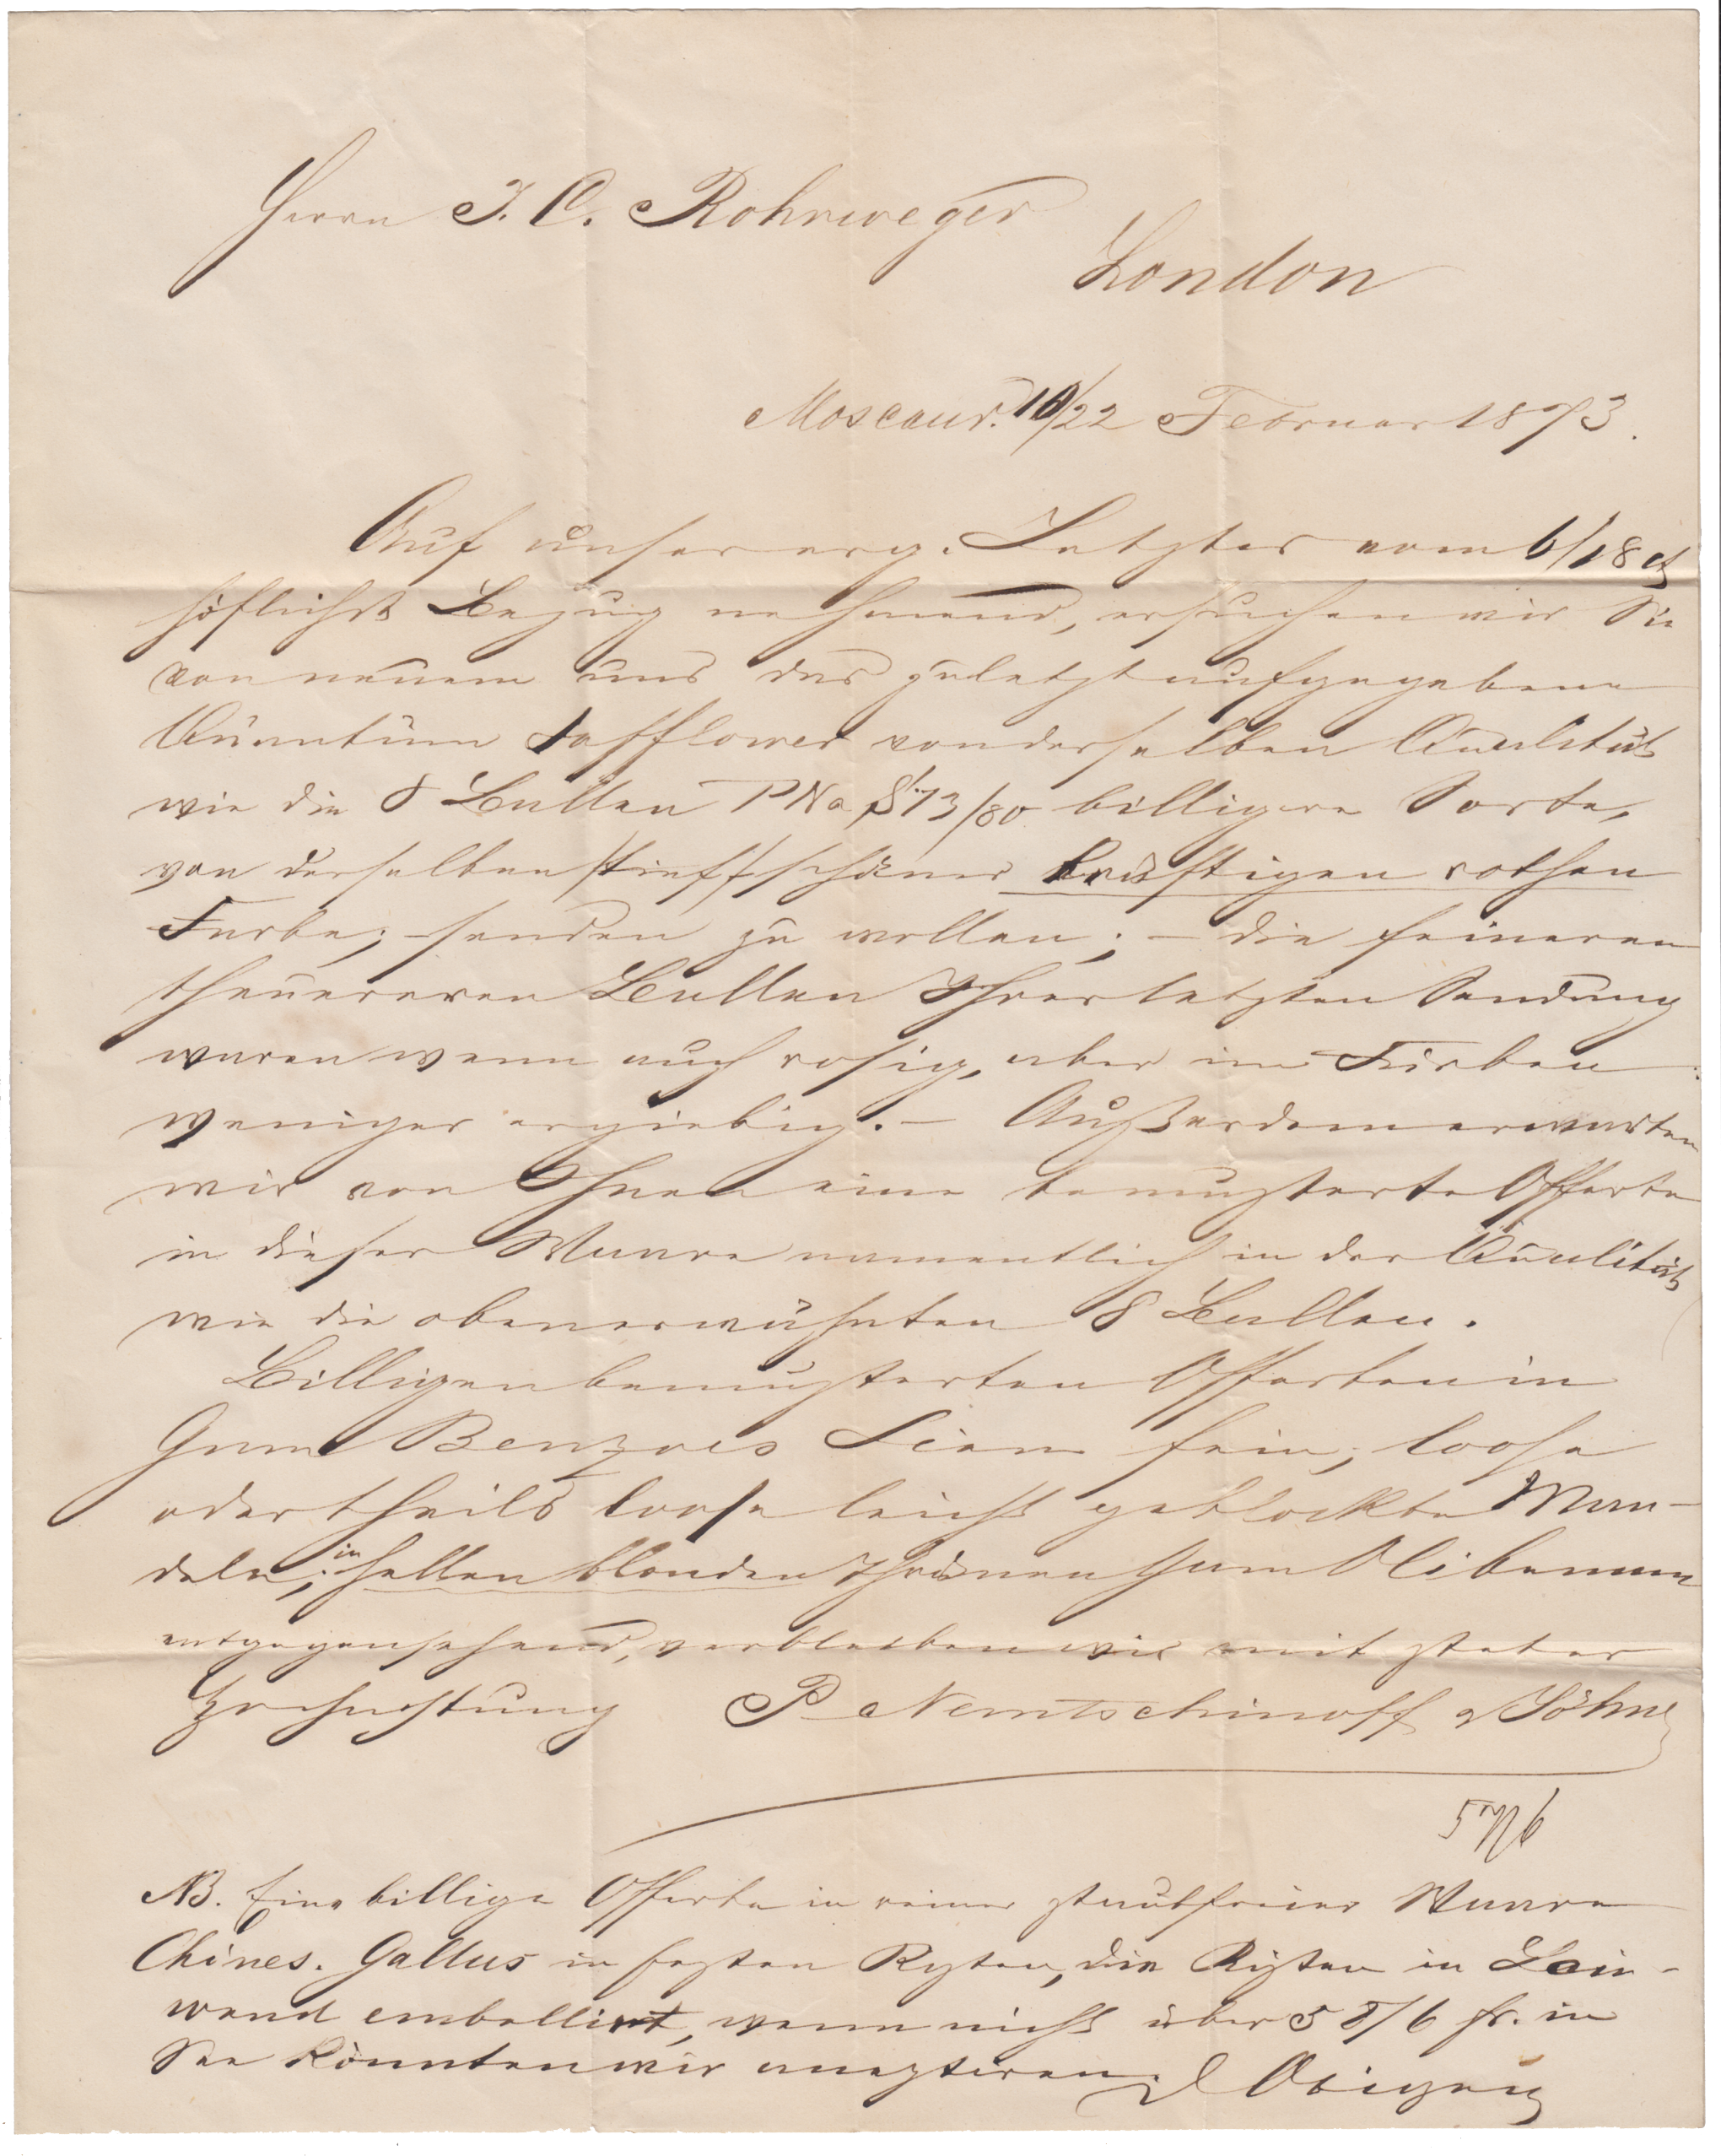 Herrn J. C. Rohrweger
London
Moscau d. 10/22 Februar 1873.
Auf unser erg. Letztes vom 6/18 ct
höflichst Bezug nehmend, ersuchen wir Sie
von neuem uns das zuletzt aufgegebene
Quantum Safflower von derselben Qualität
wie die 8 Ballen PN 73/80 billigere Sorte,
von derselben schöner kräftigen rothen
Farbe, senden zu wollen; – die feineren
theuereren Ballen Ihrer letzten Sendung
waren wenn auch rosig, aber im Färben
weniger ergiebig. – Außerdem erwarten
wir von Ihnen eine bemusterte Offerte
in dieser Waare namentlich in der Qualität
wie die obenerwähnten 8 Ballen.
Billigen bemusterten Offerten in
Gum Benzoes Siam fein, loose
oder theils loose leicht geblockte Man-
deln, in hellen blonden Thränen Gum Olibanum
entgegensehend, verbleiben wir mit steter
Hochachtung P Nemtschinoff & Söhne
NB. Eine billige Offerte in reiner staubfreier Waare
Chines. Gallus in festen Kisten, die Kisten in Lein-
wand emballirt, wenn nicht über 58/6 fr. in
See könnten wir acceptiren. d Obigen